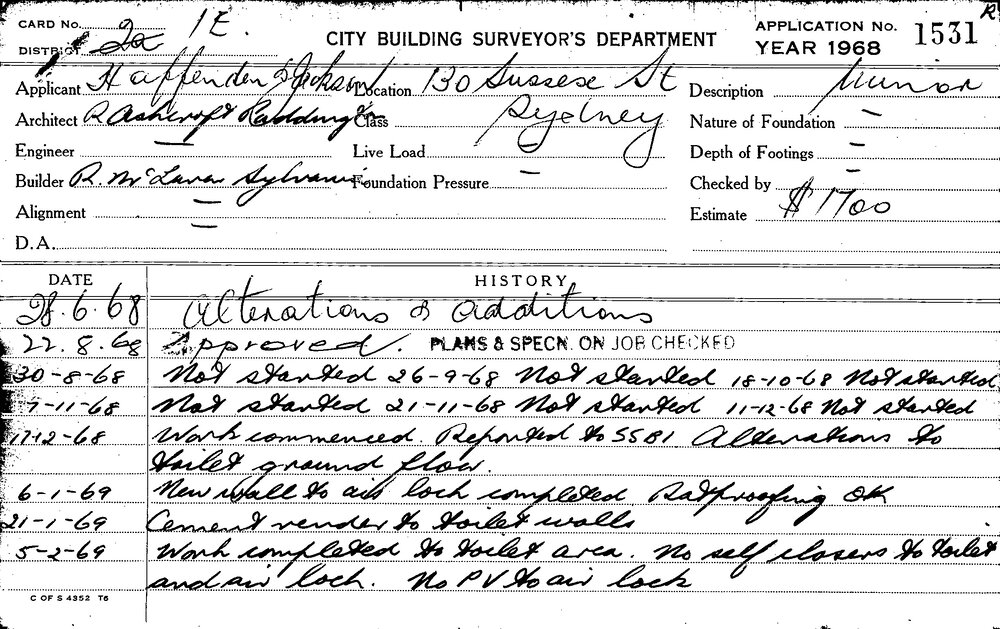 CARD No. 2a 1E. CITY BUILDING SURVEYOR'S DEPARTMENT APPLICATION No. 1531 R
DISTRICT YEAR 1968
Applicant Haffenden & Jackson Location 130 Sussex St Description Minor
Architect R Ashcroft Raddington Class Sydney Nature of Foundation —
Engineer — Live Load — Depth of Footings —
Builder R. McLaren Sylvania Foundation Pressure — Checked by —
Alignment — Estimate $1700
D.A. —
DATE HISTORY
28.6.68 Alterations & additions
22.8.68 Approved. PLANS & SPECN. ON JOB CHECKED
30-8-68 Not started 26-9-68 Not started 18-10-68 Not started
7-11-68 Not started 21-11-68 Not started 11-12-68 Not started
17-12-68 Work commenced. Reported to SSBI Alterations to
toilet ground floor.
6-1-69 New wall to air lock completed Ratproofing OK
21-1-69 Cement render to toilet walls
5-2-69 Work completed to toilet area. No self closers to toilet
and air lock. No PV to air lock
C OF S 4352 T6